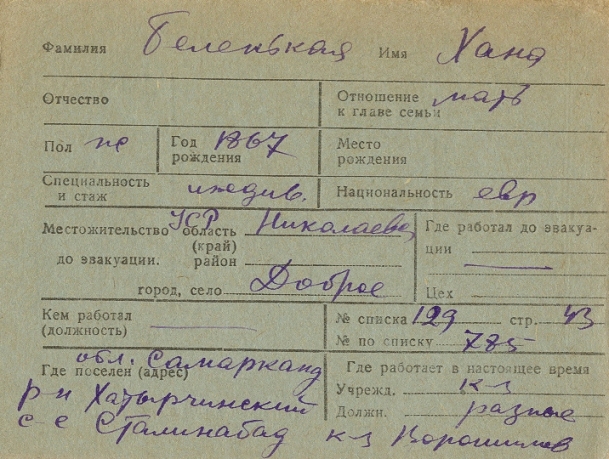 Фамилия Беленькая Имя Хана
Отчество
Отношение к главе семьи мать
Пол ж
Год рождения 1867
Место рождения
Специальность и стаж иждив.
Национальность евр
Местожительство до эвакуации.
УСР область (край) Николаевск
район
город, село Доброе
Где работал до эвакуации —
Цех
Кем работал (должность) —
№ списка 129 стр. 43
№ по списку 785
Где поселен (адрес) обл. Самарканд
р н Хатырчинский
с с Сталинабад к-з Ворошилов
Где работает в настоящее время
Учрежд. к-з
Должн. разные